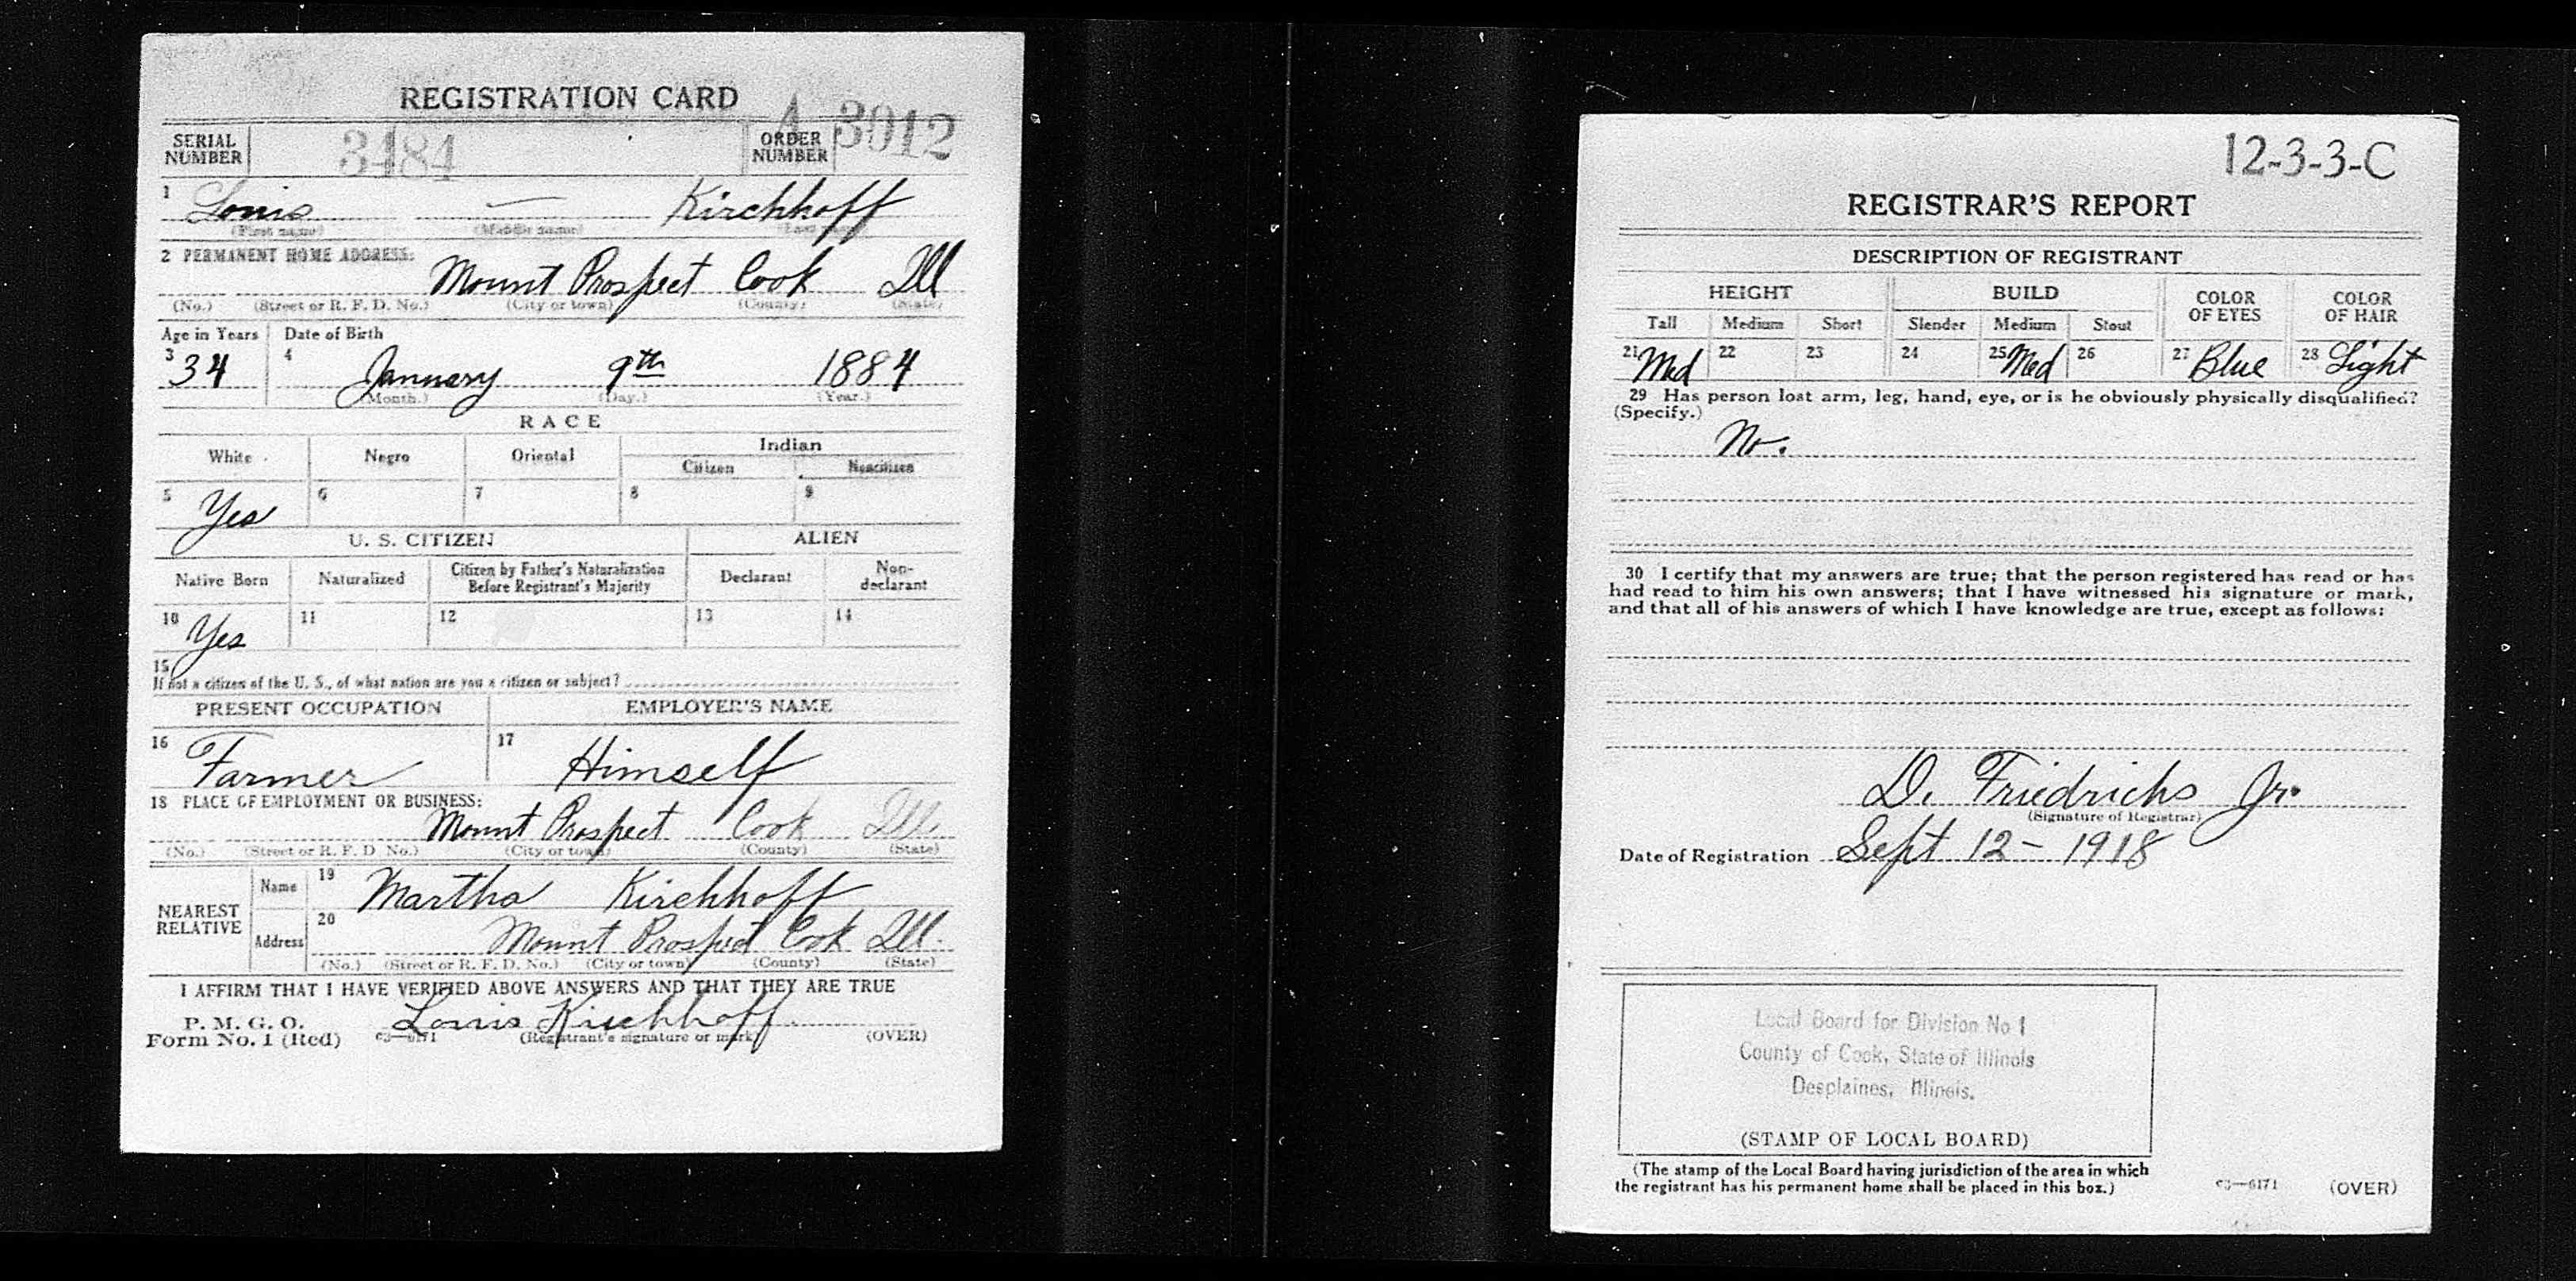 REGISTRATION CARD
SERIAL NUMBER 3484 ORDER NUMBER A 3012
1 Louis — Kirchhoff
(First name) (Middle name) (Last name)
2 PERMANENT HOME ADDRESS:
Mount Prospect Cook Ill
(No.) (Street or R. F. D. No.) (City or town) (County) (State)
Age in Years Date of Birth
3 34 4 January 9th 1884
(Month.) (Day.) (Year.)
RACE
White Negro Oriental Indian
Citizen Noncitizen
5 Yes 6 7 8 9
U. S. CITIZEN ALIEN
Native Born Naturalized Citizen by Father's Naturalization Before Registrant's Majority Declarant Non-declarant
10 Yes 11 12 13 14
15
If not a citizen of the U. S., of what nation are you a citizen or subject?
PRESENT OCCUPATION EMPLOYER'S NAME
16 Farmer 17 Himself
18 PLACE OF EMPLOYMENT OR BUSINESS:
Mount Prospect Cook Ill.
(No.) (Street or R. F. D. No.) (City or town) (County) (State)
NEAREST RELATIVE
Name 19 Martha Kirchhoff
Address 20 Mount Prospect Cook Ill.
(No.) (Street or R. F. D. No.) (City or town) (County) (State)
I AFFIRM THAT I HAVE VERIFIED ABOVE ANSWERS AND THAT THEY ARE TRUE
P. M. G. O.
Form No. 1 (Red) c3—6171 Louis Kirchhoff
(Registrant's signature or mark) (OVER)
12-3-3-C
REGISTRAR'S REPORT
DESCRIPTION OF REGISTRANT
HEIGHT BUILD COLOR OF EYES COLOR OF HAIR
Tall Medium Short Slender Medium Stout
21 Med 22 23 24 25 Med 26 27 Blue 28 Light
29 Has person lost arm, leg, hand, eye, or is he obviously physically disqualified?
(Specify.)
No.
30 I certify that my answers are true; that the person registered has read or has
had read to him his own answers; that I have witnessed his signature or mark,
and that all of his answers of which I have knowledge are true, except as follows:
D. Friedrichs Jr.
(Signature of Registrar)
Date of Registration Sept 12 - 1918
Local Board for Division No 1
County of Cook, State of Illinois
Desplaines, Illinois.
(STAMP OF LOCAL BOARD)
(The stamp of the Local Board having jurisdiction of the area in which
the registrant has his permanent home shall be placed in this box.)
c3—6171 (OVER)